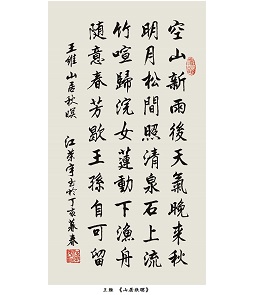 空山新雨後天氣晚来秋
明月松間照清泉石上流
竹喧歸浣女蓮動下漁舟
随意春芳歇王孫自可留
王維山居秋暝 江榮宇書於丁亥暮春
王維 《山居秋暝》